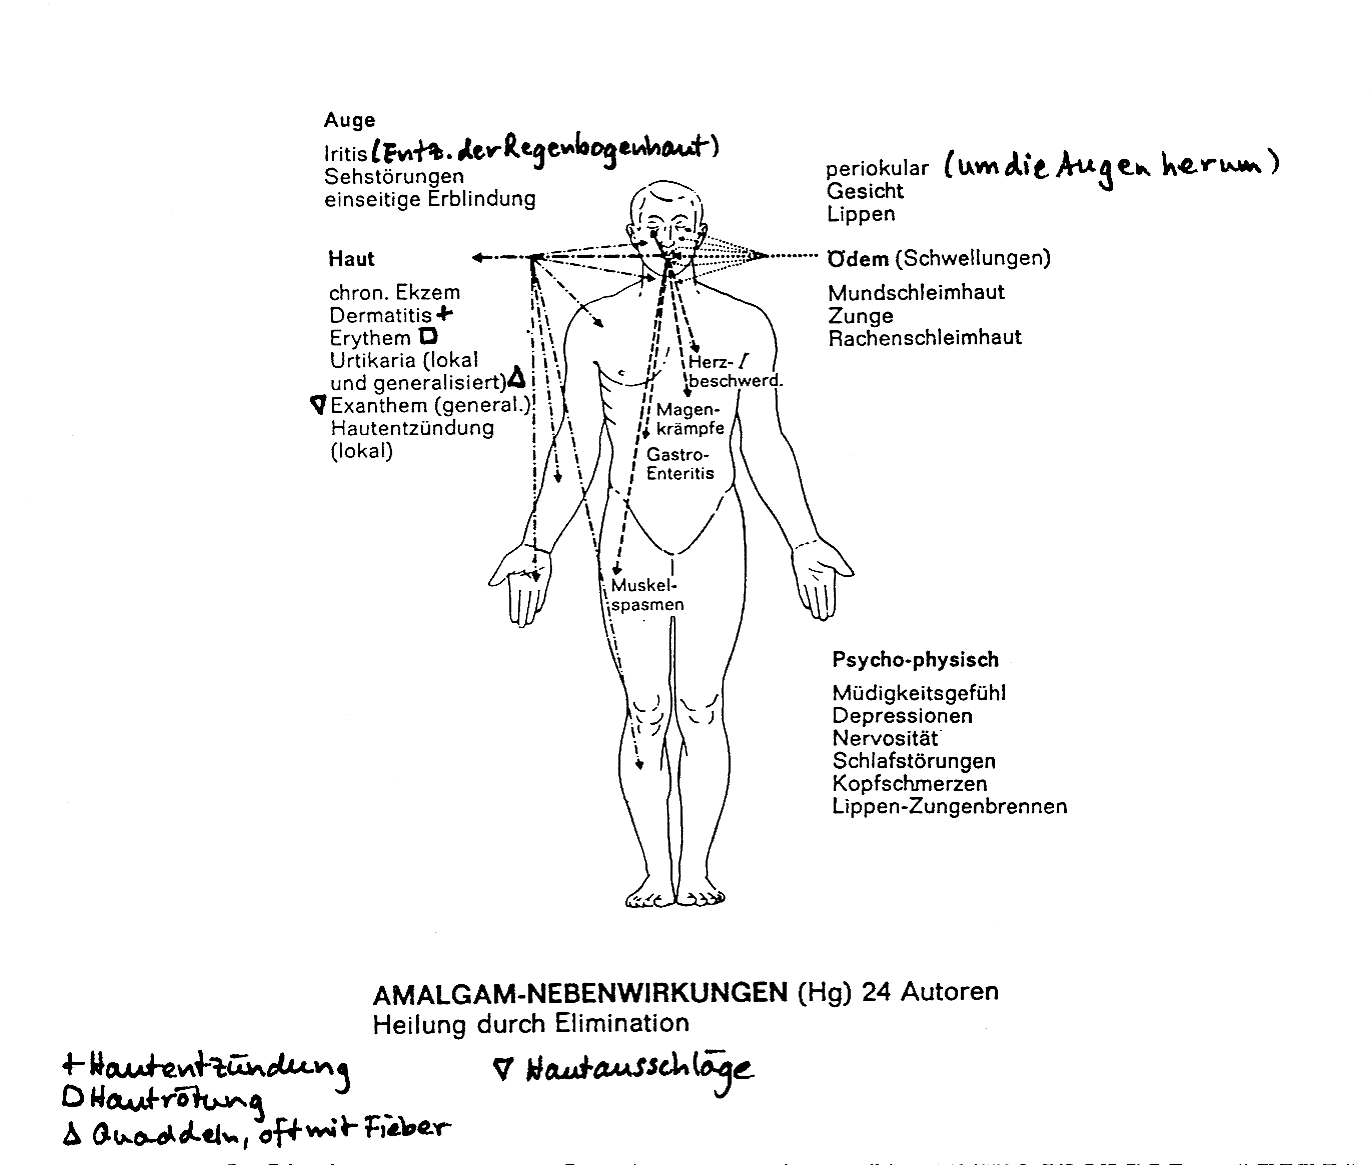 Auge
Iritis (Entz. der Regenbogenhaut)
Sehstörungen
einseitige Erblindung
periokular (um die Augen herum)
Gesicht
Lippen
Haut
Ödem (Schwellungen)
chron. Ekzem
Dermatitis +
Erythem □
Urtikaria (lokal
und generalisiert) △
▽ Exanthem (general.)
Hautentzündung
(lokal)
Mundschleimhaut
Zunge
Rachenschleimhaut
Herz-
beschwerd.
Magen-
krämpfe
Gastro-
Enteritis
Muskel-
spasmen
Psycho-physisch
Müdigkeitsgefühl
Depressionen
Nervosität
Schlafstörungen
Kopfschmerzen
Lippen-Zungenbrennen
AMALGAM-NEBENWIRKUNGEN (Hg) 24 Autoren
Heilung durch Elimination
+ Hautentzündung
□ Hautrötung
△ Quaddeln, oft mit Fieber
▽ Hautausschläge